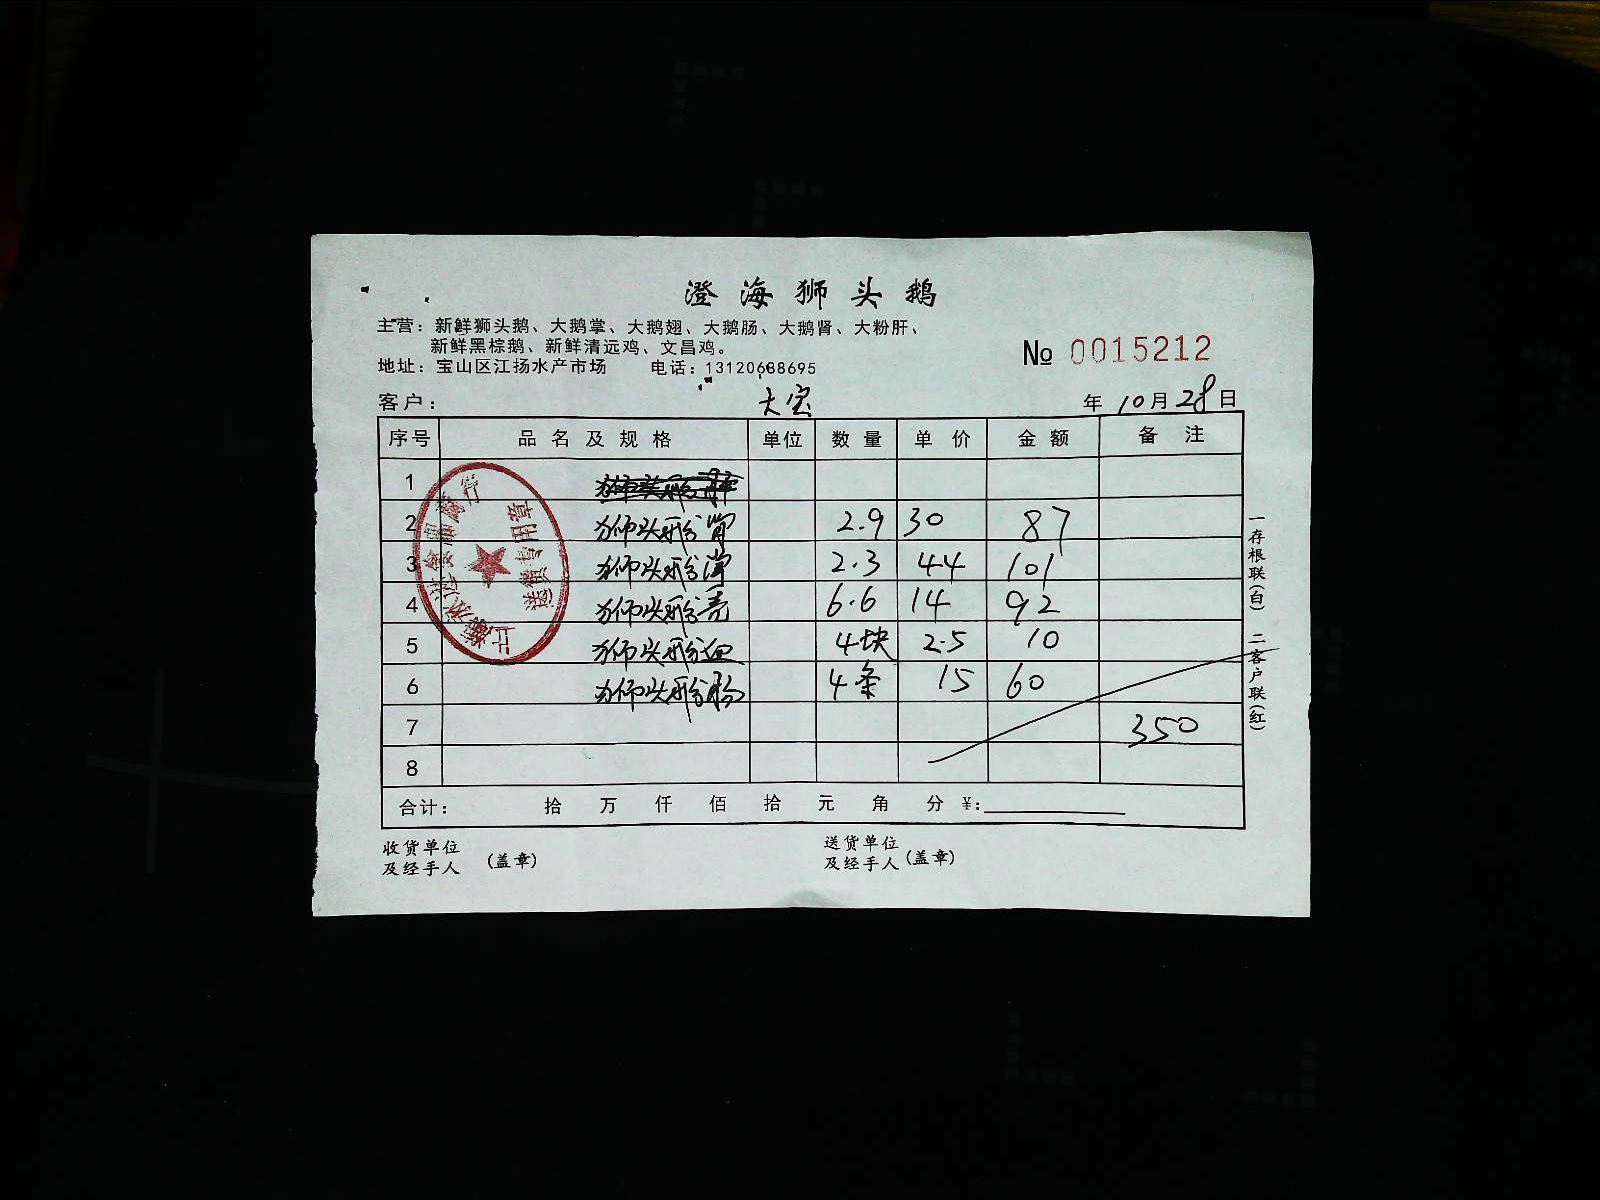 澄海狮头鹅
主营：新鲜狮头鹅、大鹅掌、大鹅翅、大鹅肠、大鹅肾、大粉肝、
新鲜黑棕鹅、新鲜清远鸡、文昌鸡。
№ 0015212
地址：宝山区江扬水产市场 电话：13120688695
客户： 大宝 年 10月 28日
序号 品名及规格 单位 数量 单价 金额 备注
1
2 狮头鹅肾 2.9 30 87
3 狮头鹅掌 2.3 44 101
4 狮头鹅壳 6.6 14 92
5 狮头鹅血 4块 2.5 10
6 狮头鹅 4条 15 60
7 350
8
合计： 拾 万 仟 佰 拾 元 角 分 ¥：
收货单位
及经手人 （盖章）
送货单位
及经手人（盖章）
一存根联（白） 二客户联（红）
送货专用章